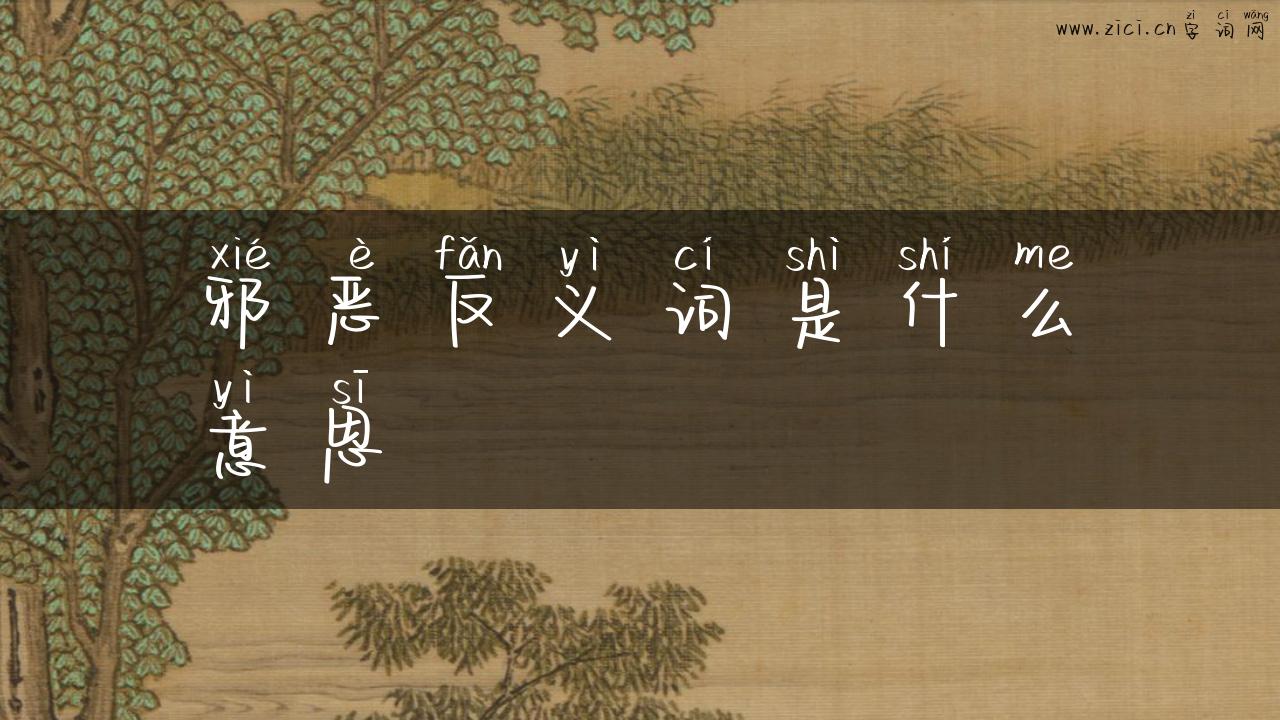 zì cí wǎng
www.zici.cn 字词网
xié è fǎn yì cí shì shí me
邪恶反义词是什么
yì sī
意思